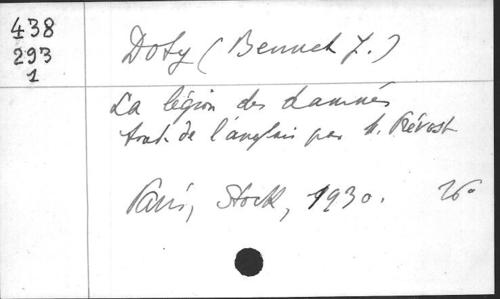 438
293
1
Doty (Bennet J.)
La légion des damnés
trad. de l'anglais par M. Prévost
Paris, Stock, 1930. 16°